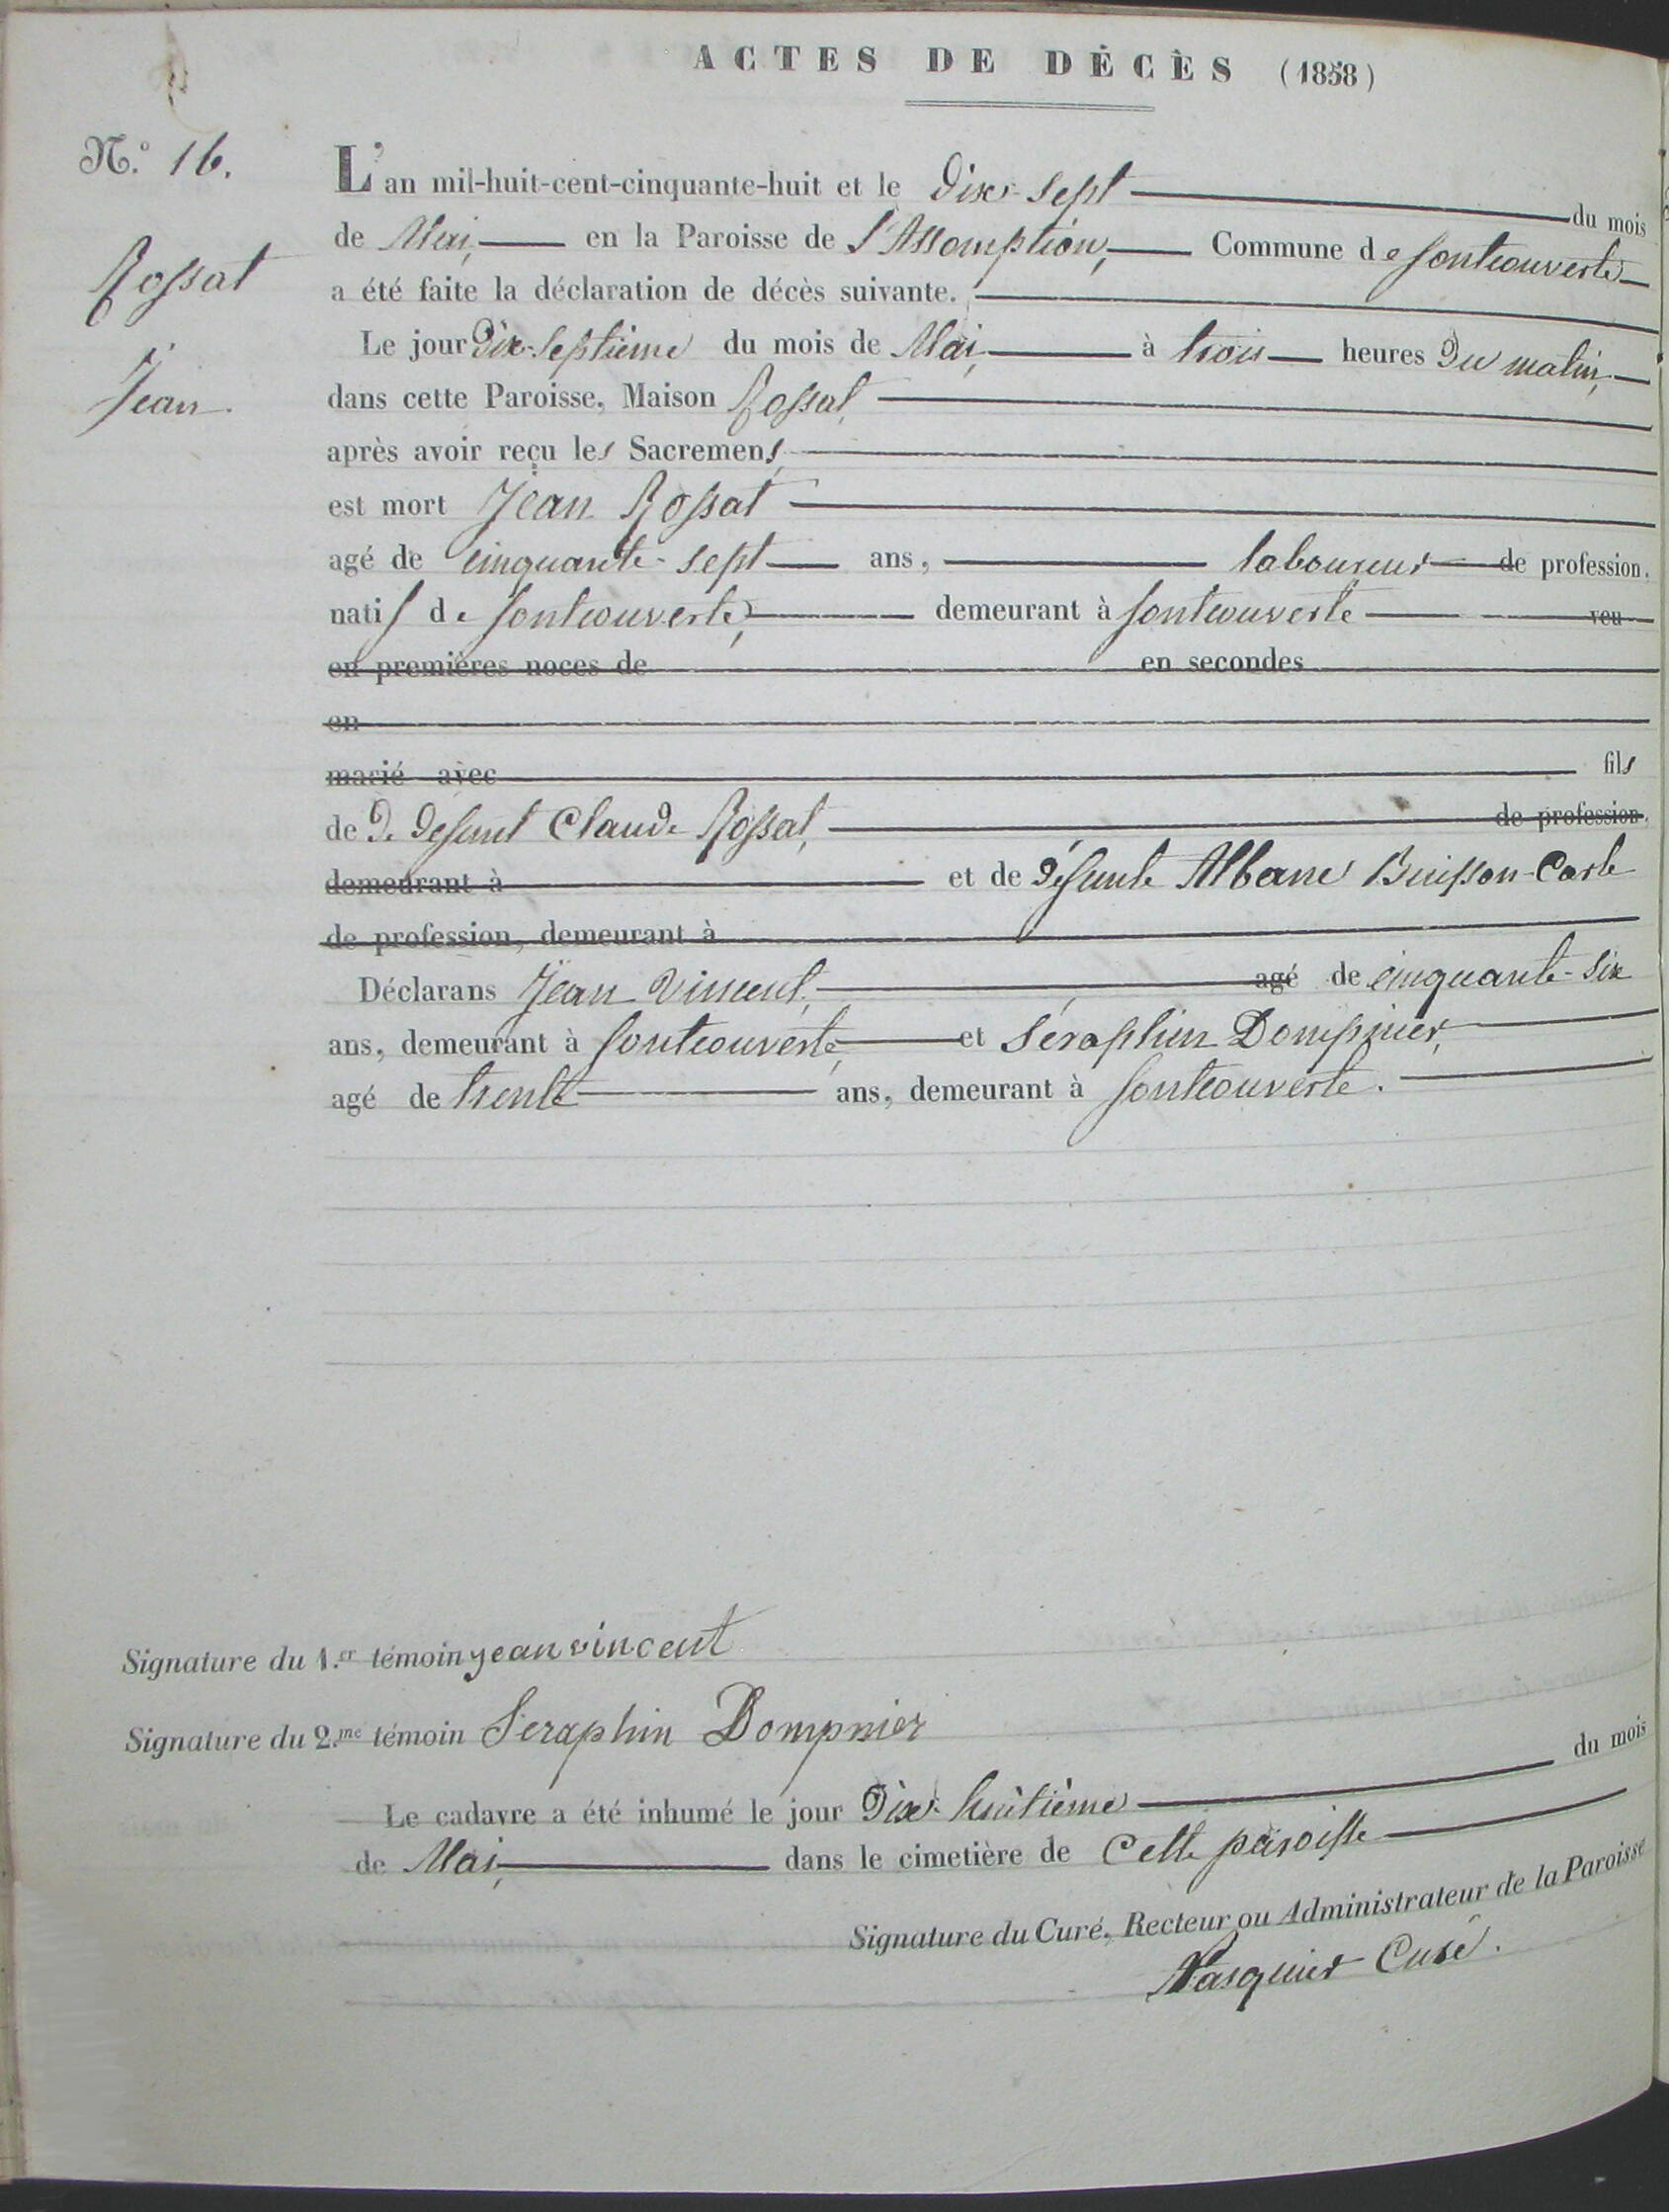 ACTES DE DÉCÈS (1858)
N.º 16.
Rossat
Jean.
L'an mil-huit-cent-cinquante-huit et le Dix-sept du mois
de Mai, en la Paroisse de l'Assomption, Commune de fontcouverte
a été faite la déclaration de décès suivante.
Le jour Dix-septième du mois de Mai, à trois heures Du matin,
dans cette Paroisse, Maison Rossat,
après avoir reçu les Sacremens
est mort Jean Rossat
agé de cinquante-sept ans, laboureur de profession.
natif de fontcouverte, demeurant à fontcouverte veu
en premières noces de en secondes
en
marié avec fils
de D. Defunt Claude Rossat, de profession,
demeurant à et de Défunte Albane Buisson-Carle
de profession, demeurant à
Déclarans Jean Vincent, agé de cinquante-six
ans, demeurant à fontcouverte, et Séraphin Dompnier,
agé de trente ans, demeurant à fontcouverte.
Signature du 1.er témoin jean vincent
Signature du 2.me témoin Seraphin Dompnier
Le cadavre a été inhumé le jour Dix-huitième du mois
de Mai, dans le cimetière de Cette paroisse
Signature du Curé, Recteur ou Administrateur de la Paroisse
Pasquier Curé.